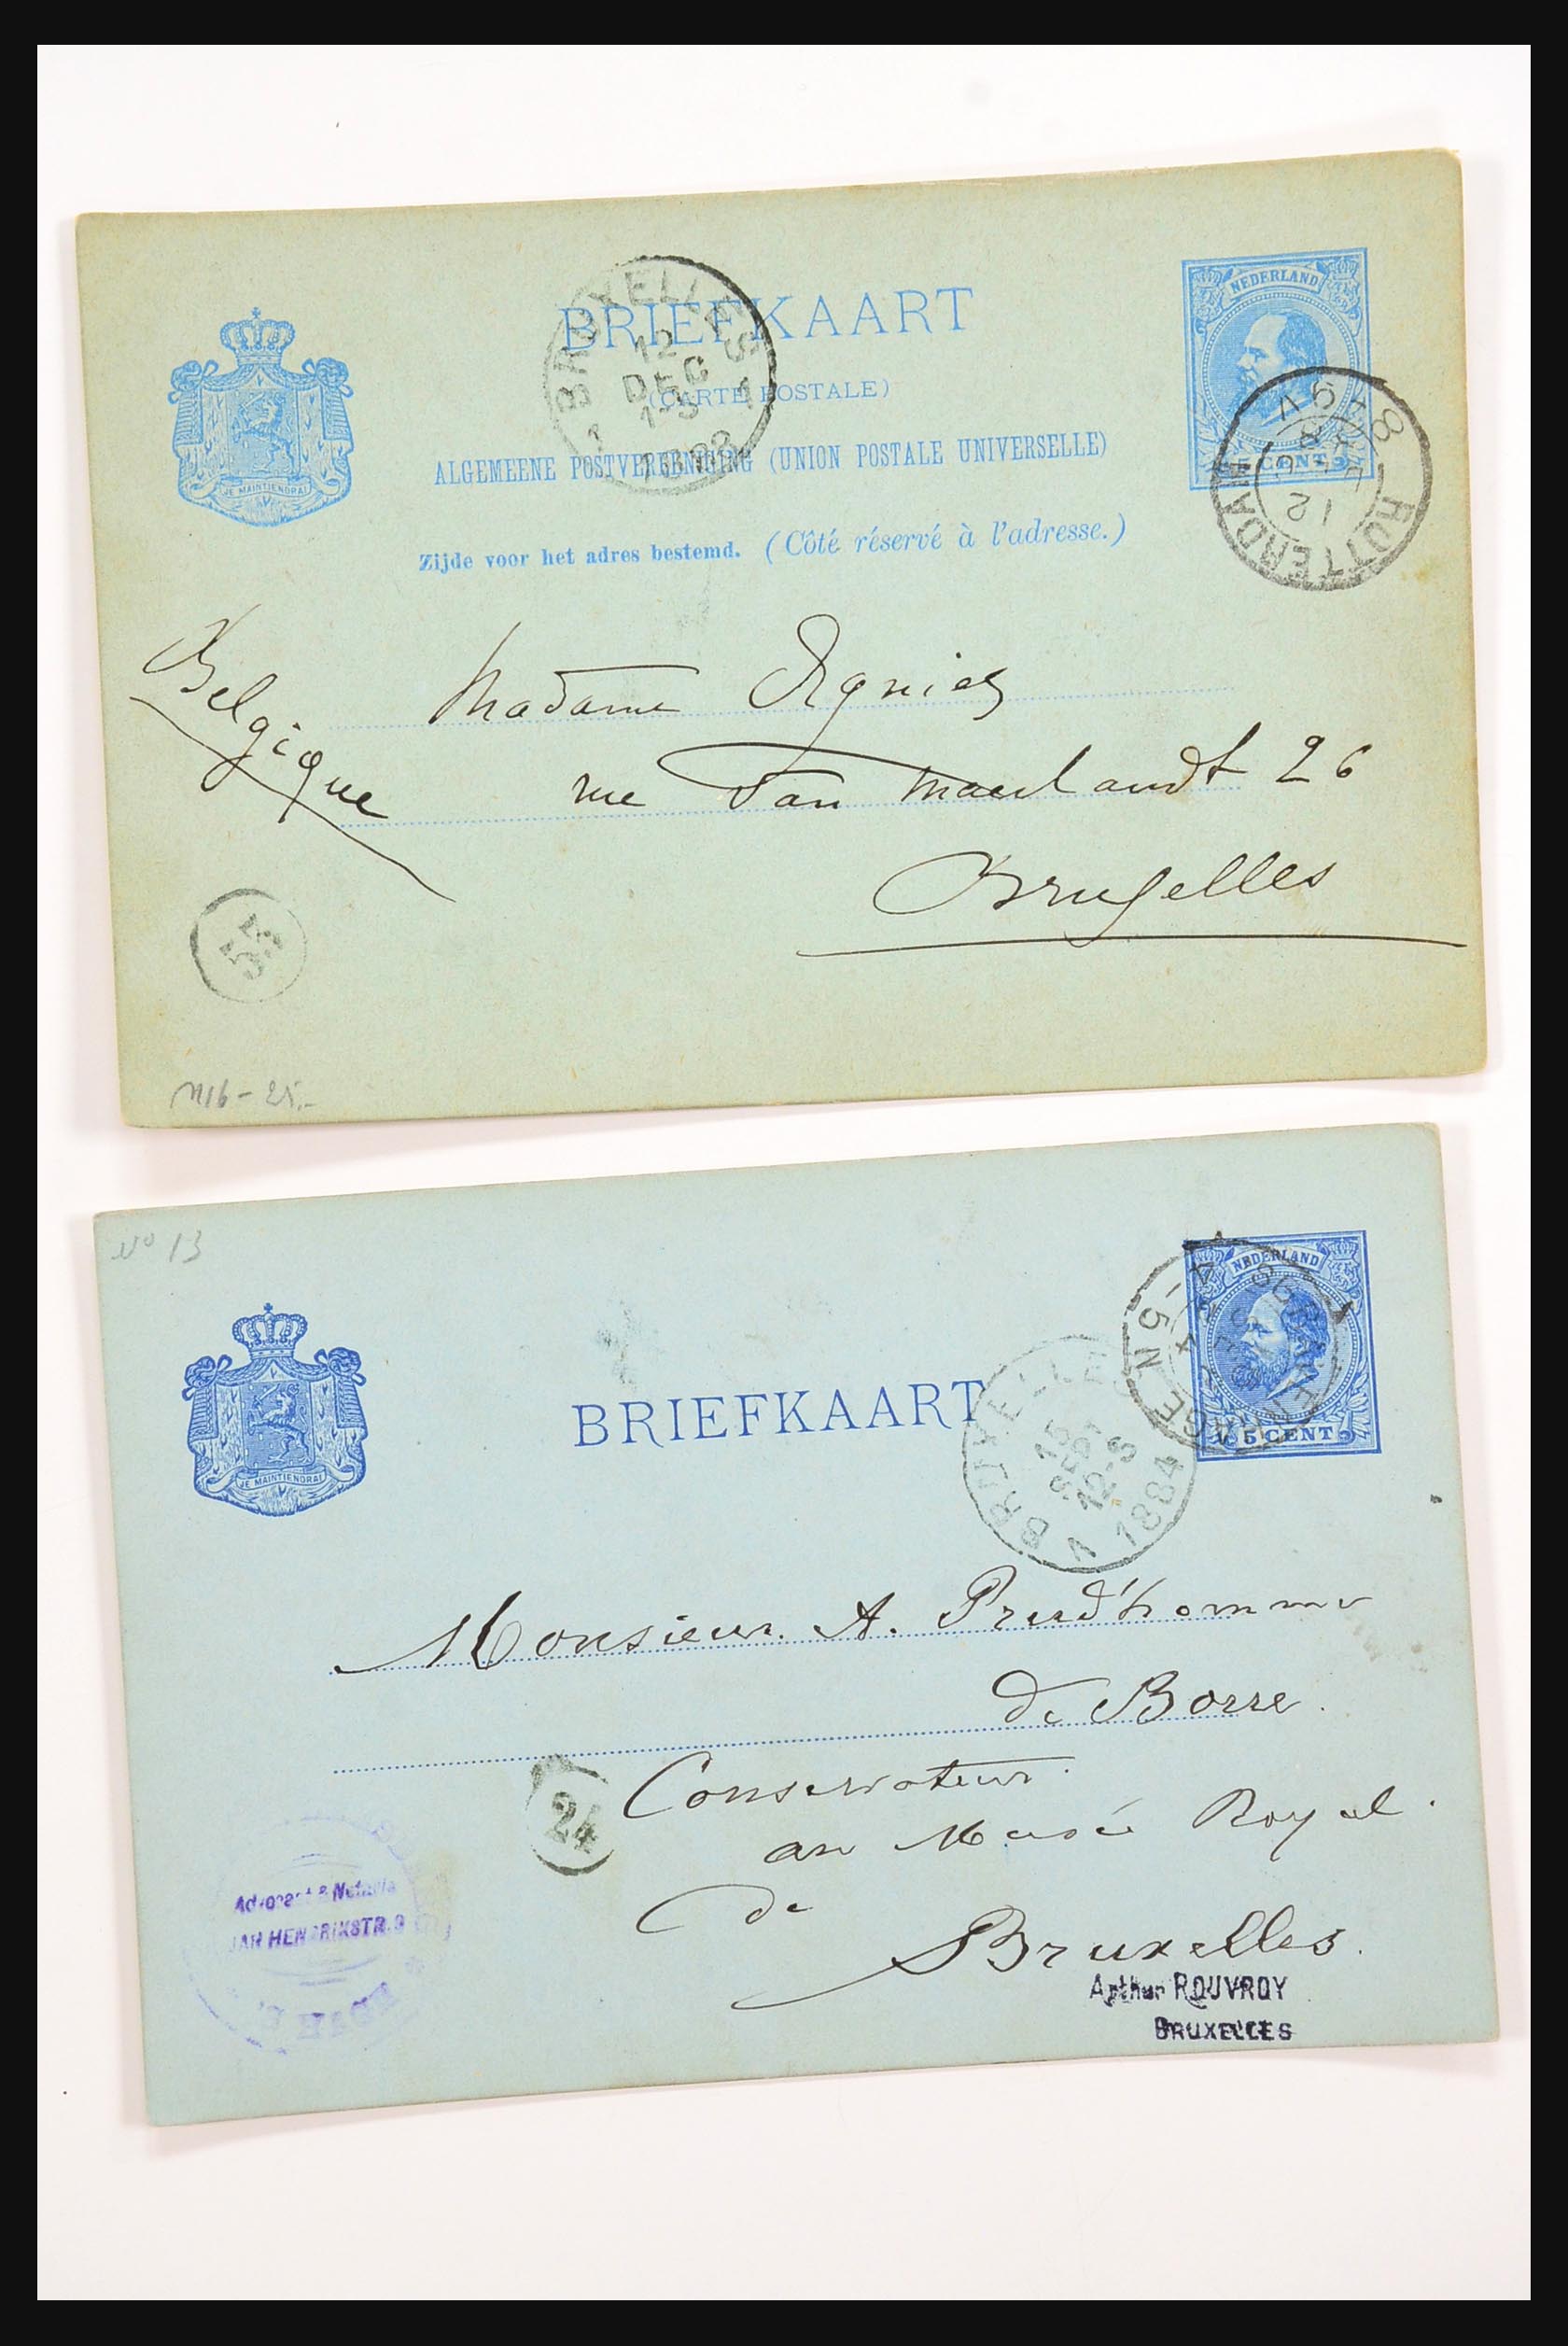 BRIEFKAART
(CARTE POSTALE)
ALGEMEENE POSTVEREENIGING (UNION POSTALE UNIVERSELLE)
Zijde voor het adres bestemd. (Côté réservé à l'adresse.)
JE MAINTIENDRAI
NEDERLAND
5 CENT
BRUXELLES
12
DEC
1888
ROTTERDAM
12
Belgique
Madame
rue Van Maerlandt 26
Bruxelles
53
N16 - 25.-
No 13
BRIEFKAART
JE MAINTIENDRAI
NEDERLAND
5 CENT
'S GRAVENHAGE
4 - 5 N
BRUXELLES
15
12-S
1884
Monsieur A. Prud'homme
de Borre.
Conservateur
au Musée Royal.
de
Bruxelles.
24
JAN HENDRIKSTR. 9
HAGE
Arthur ROUVROY
BRUXELLES